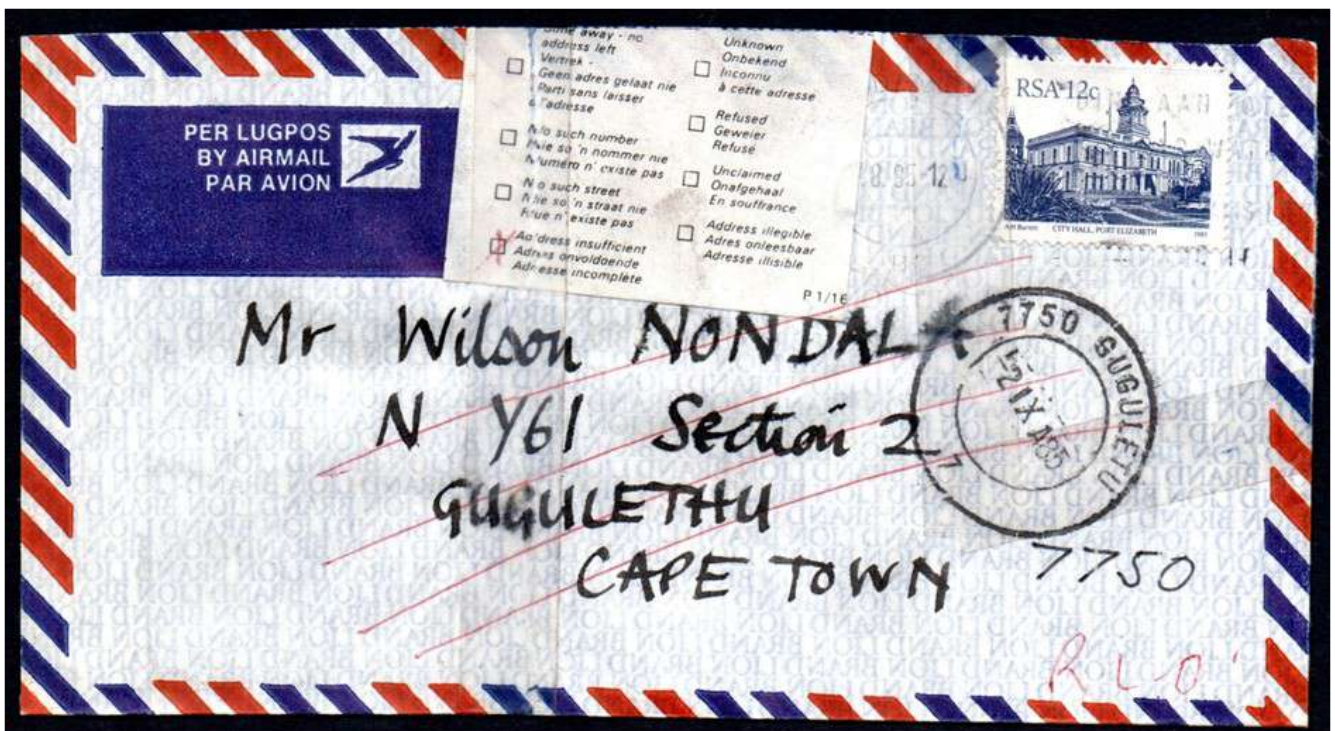 PER LUGPOS
BY AIRMAIL
PAR AVION
away - no
address left
Vertrek -
Geen adres gelaat nie
Parti sans laisser
d'adresse
No such number
Nie so 'n nommer nie
Numéro n'existe pas
No such street
Nie so 'n straat nie
Rue n'existe pas
Address insufficient
Adres onvoldoende
Adresse incomplète
Unknown
Onbekend
Inconnu
à cette adresse
Refused
Geweier
Refusé
Unclaimed
Onafgehaal
En souffrance
Address illegible
Adres onleesbaar
Adresse illisible
P 1/16
RSA 12c
CITY HALL, PORT ELIZABETH
Mr Wilson NONDALA
N Y61 Section 2
GUGULETHU
CAPE TOWN 7750
7750 GUGULETU
RLO